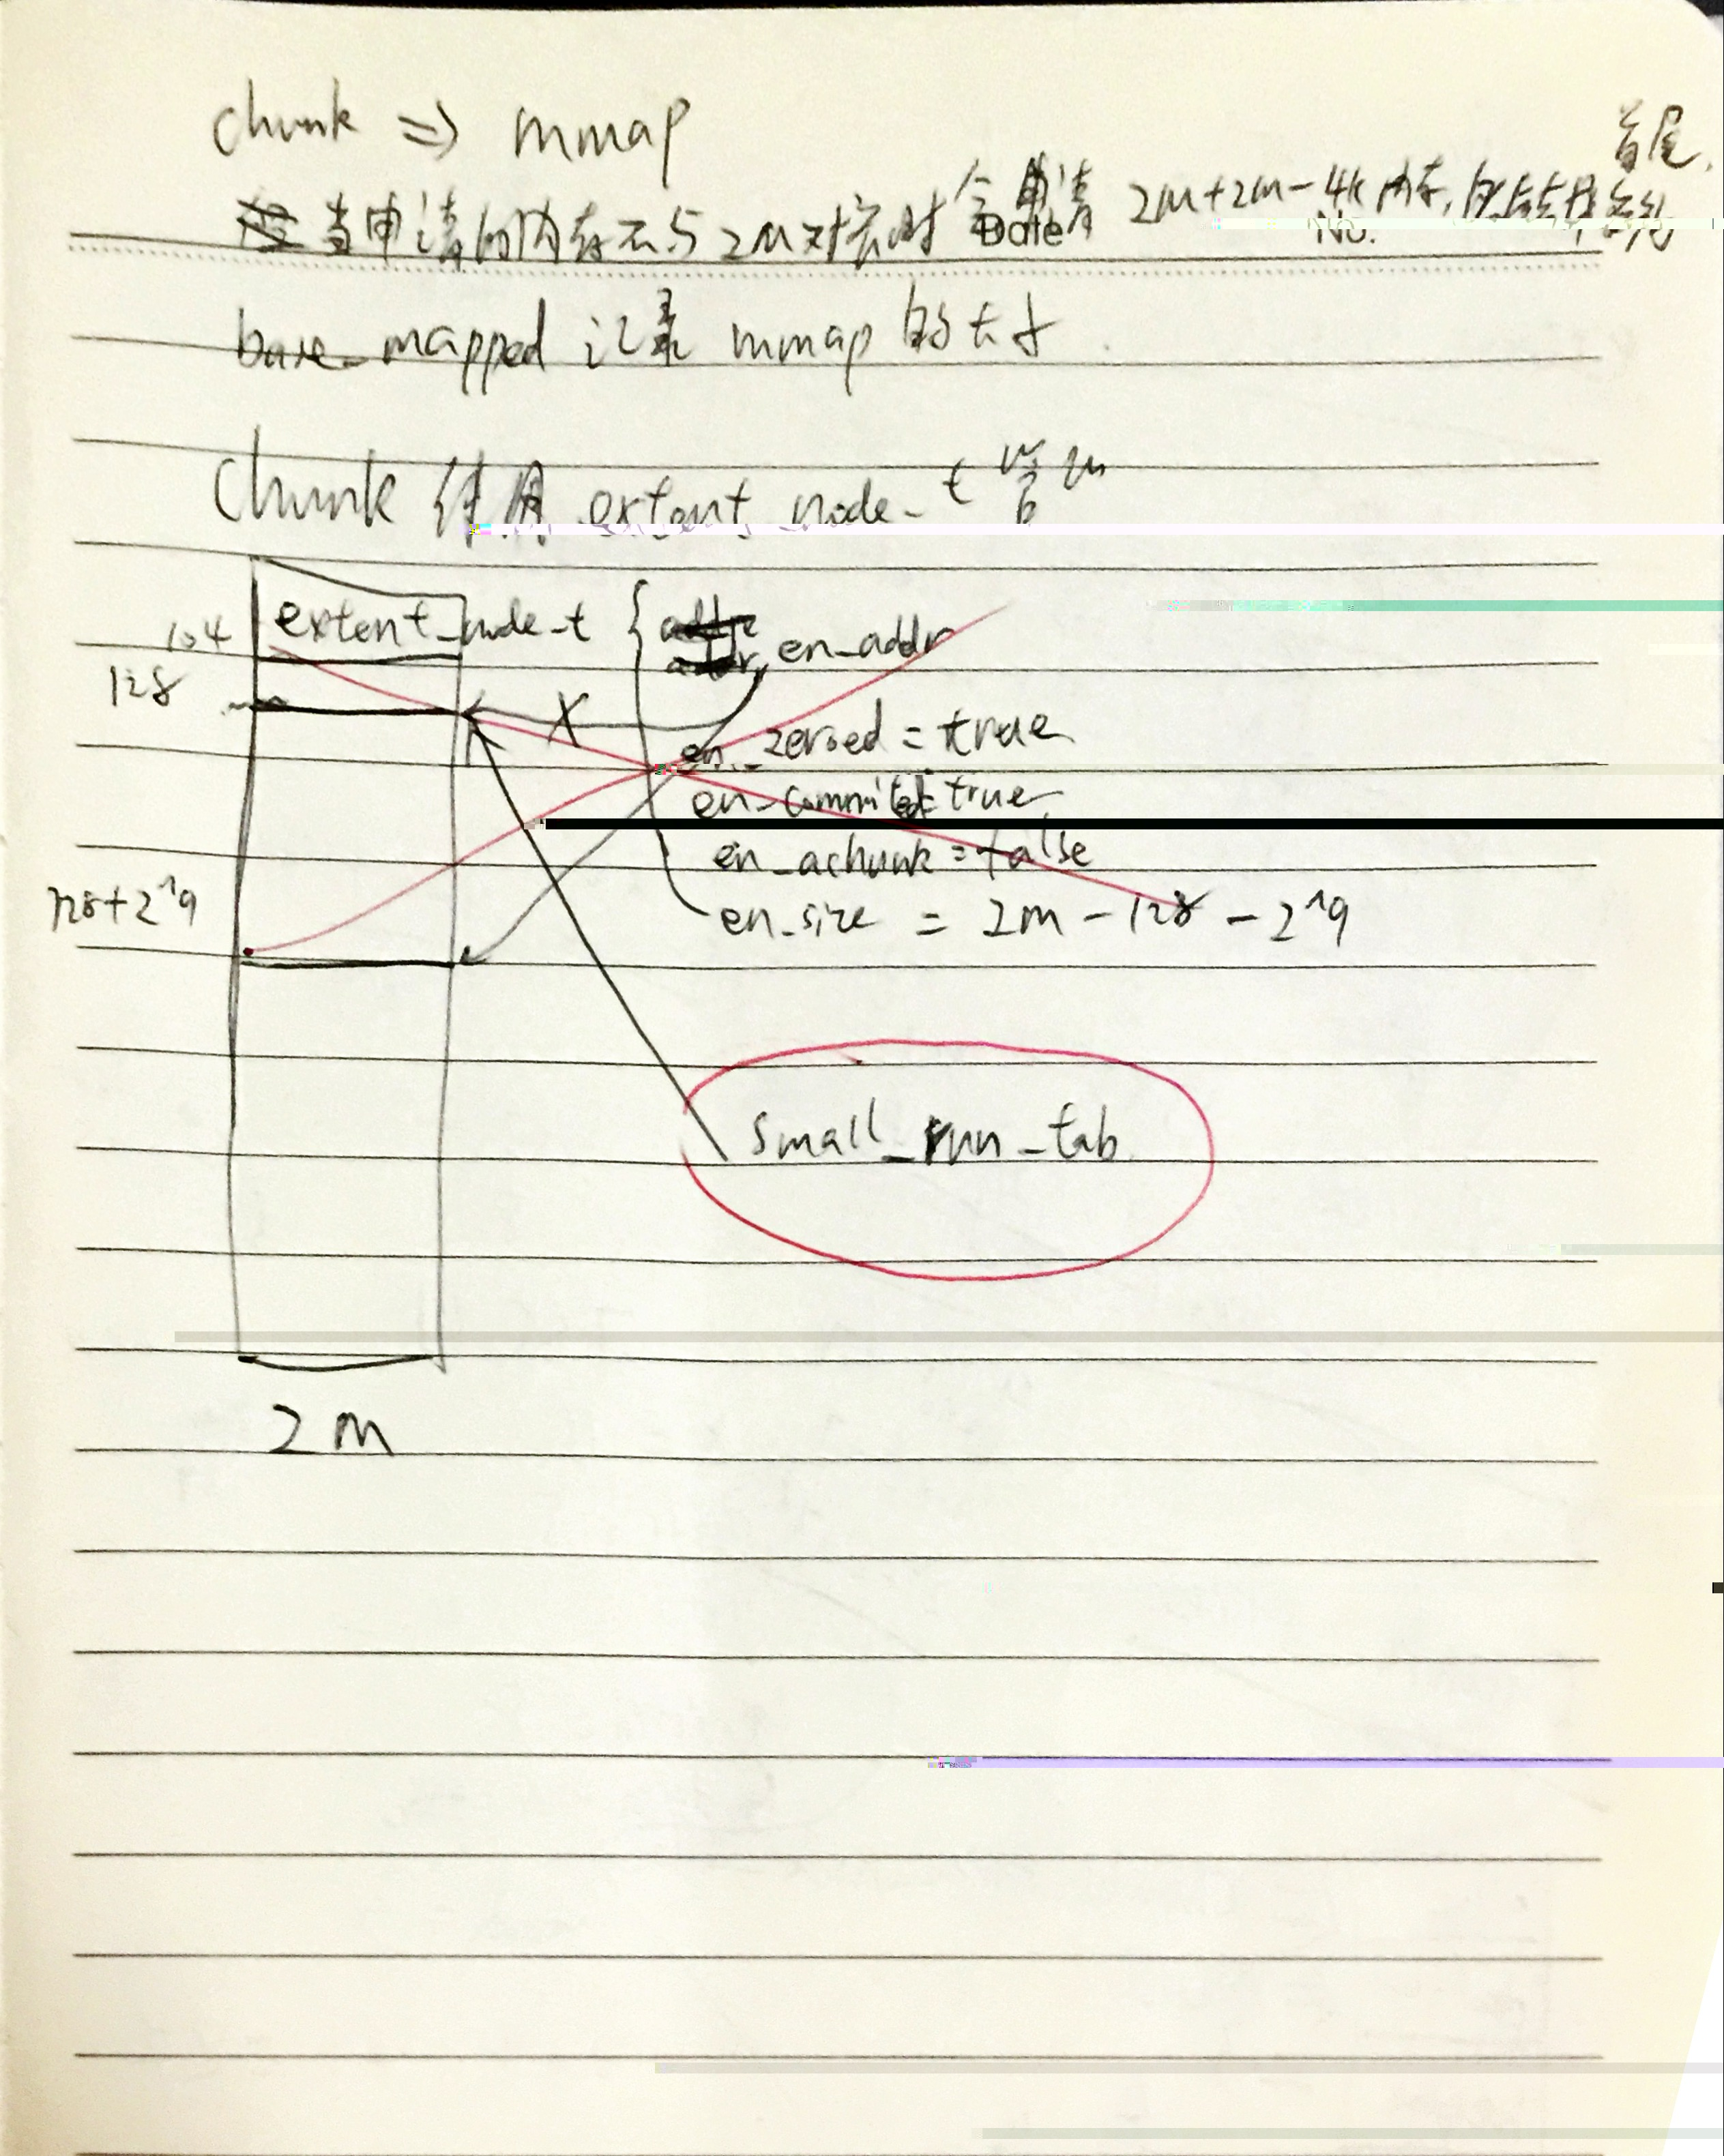 chunk => mmap
首尾.
当申请的内存不与2M对齐时 会申请 2M+2M-4k内存,
Date No.
base_mapped 记录 mmap 的大小.
Chunk 使用 extent_node_t 管理
104 extent_node_t { en_addr
128
X
en_zeroed = true
en_commited = true
en_achunk = false
128+2^19 en_size = 2M - 128 - 2^19
small_run_tab
2M